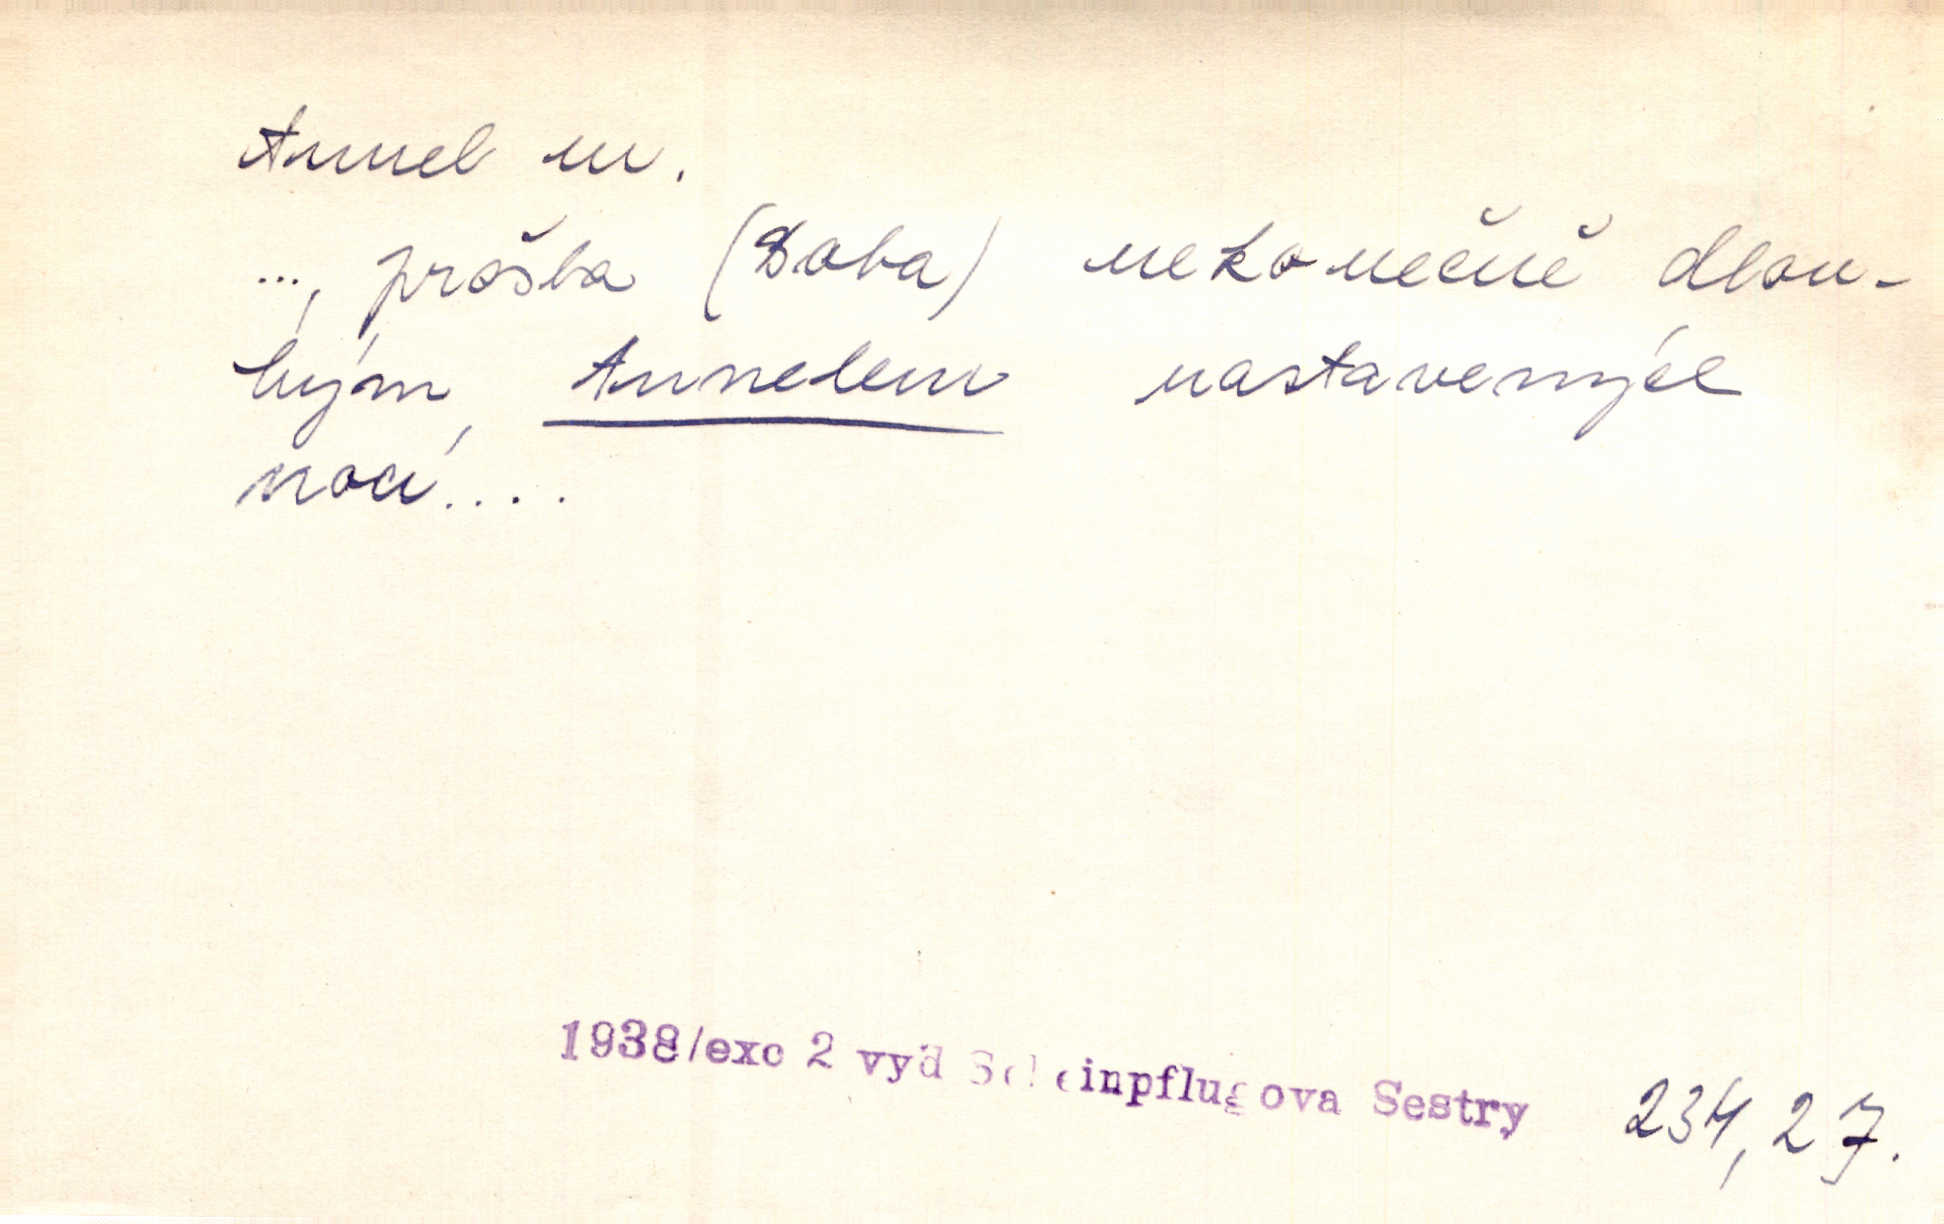 tunel m.
..., prošla (Soba) nekonečně dlou-
hým, tunelem nastavených
nocí....
1938/exc 2 vyd Scheinpflugova Sestry 234,27.